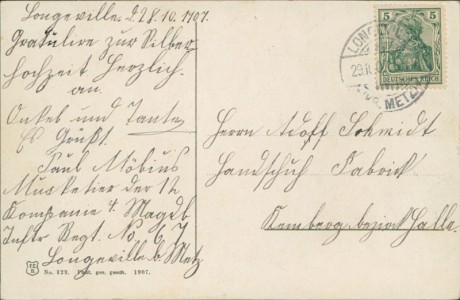 Longeville. d. 28.10.1907.
Gratulire zur Silber
hochzeit Herzlich.
an.
Onkel und Tante
Es Grüßt.
Paul Möbius
Musketier der 12
Kompanie 4. Magdb
Inftr Regt. No 67
Longeville b. Metz
No. 129. Phot. ges. gesch. 1907.
5 5
DEUTSCHES REICH
LONGEVILLE
METZ
Herrn Adolf Schmidt
Handschuh Fabrick
Kemberg bezirk Halle.